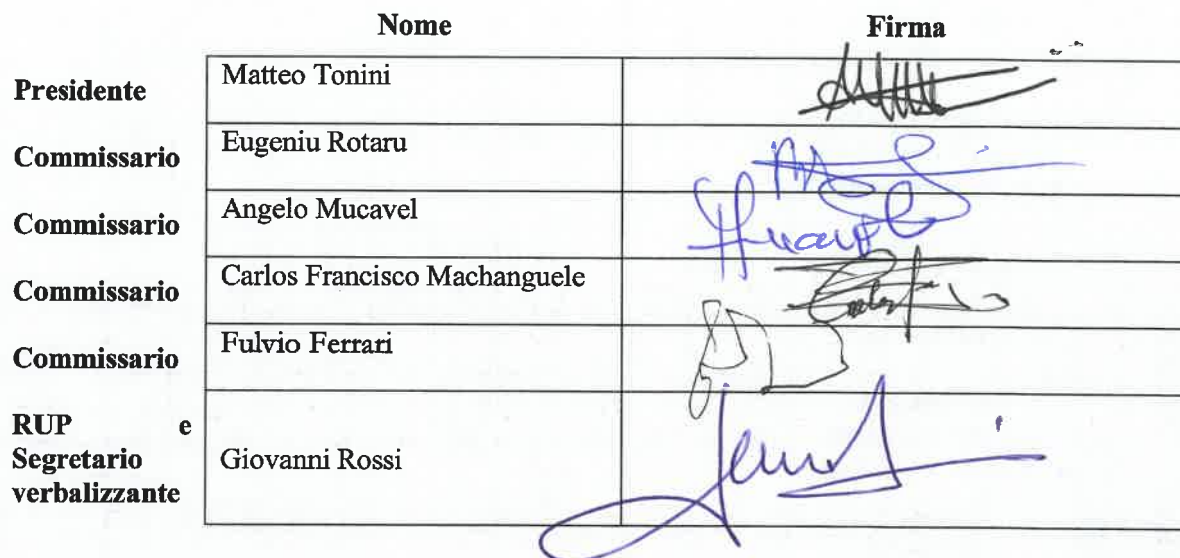 Nome Firma
Presidente Matteo Tonini
Commissario Eugeniu Rotaru
Commissario Angelo Mucavel
Commissario Carlos Francisco Machanguele
Commissario Fulvio Ferrari
RUP e
Segretario Giovanni Rossi
verbalizzante